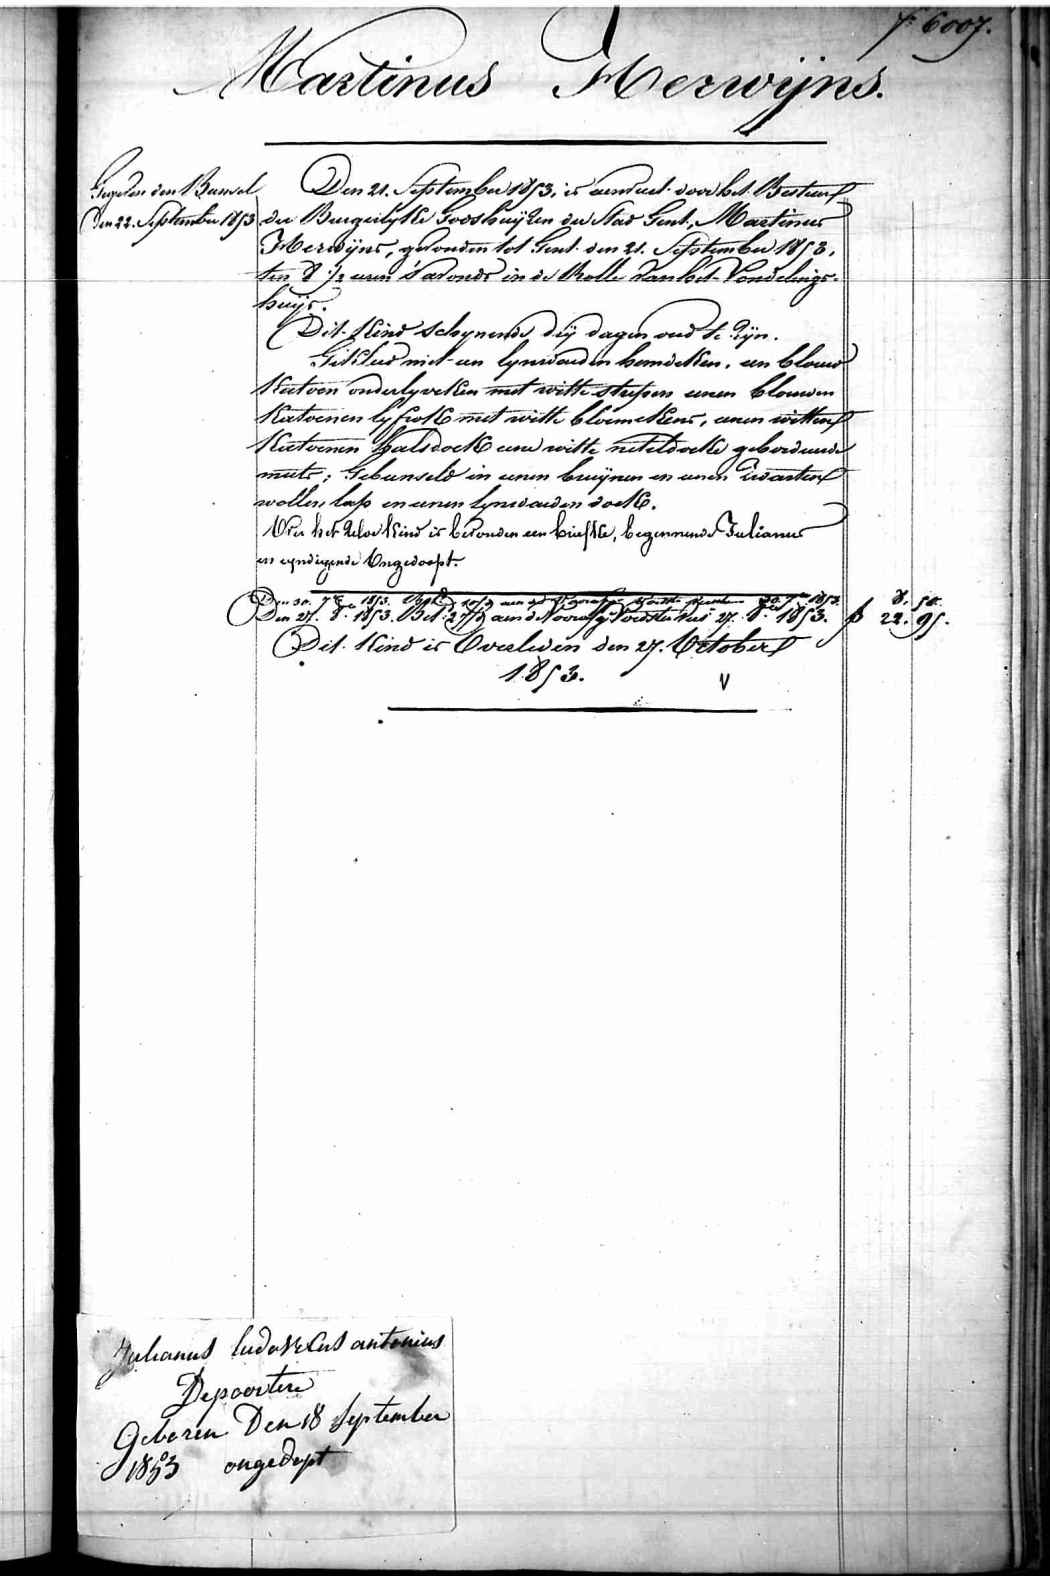 f° 6007.
Martinus Herwijns.
Gegeven den Bunsel
Den 22. September 1853
Den 21. September 1853, is aenveert door het Bestuur
der Burgerlyke Godshuijzen der Stad Gent, Martinus
Herwijns, gevonden tot Gent den 21. September 1853,
ten 8 1/2 uren 's avonds in de Rolle van het Vondelings-
huijs.
Dit Kind schynende dry dagen oud te zyn.
Gekleed met een lynwaeden hemdeken, een blauw
Katoen onderlyveken met witte strepen eenen blauwen
Katoenen lyfrok met witte bloemekens, eenen witten
Katoenen halsdoek eene witte neteldoeke geborduerde
muts; Gebunseld in eenen bruynen en eenen zwarten
wollen lap en eenen lynwaeden doek.
Over het zelve Kind is bevonden een briefke, beginnende Julianus
en eyndigende Ongedoopt.
Den 30. 7bre 1853. 30. 7bre 1853. 8. 50.
Den 27. 8bre 1853. Bet. aen de Voorzeyde Voedster tot 27. 8bre 1853. f 22. 95.
Dit Kind is Overleden den 27. October
1853.
V
Julianus ludovicus antonius
Depoortere
Geboren Den 18 September
1853 ongedopt